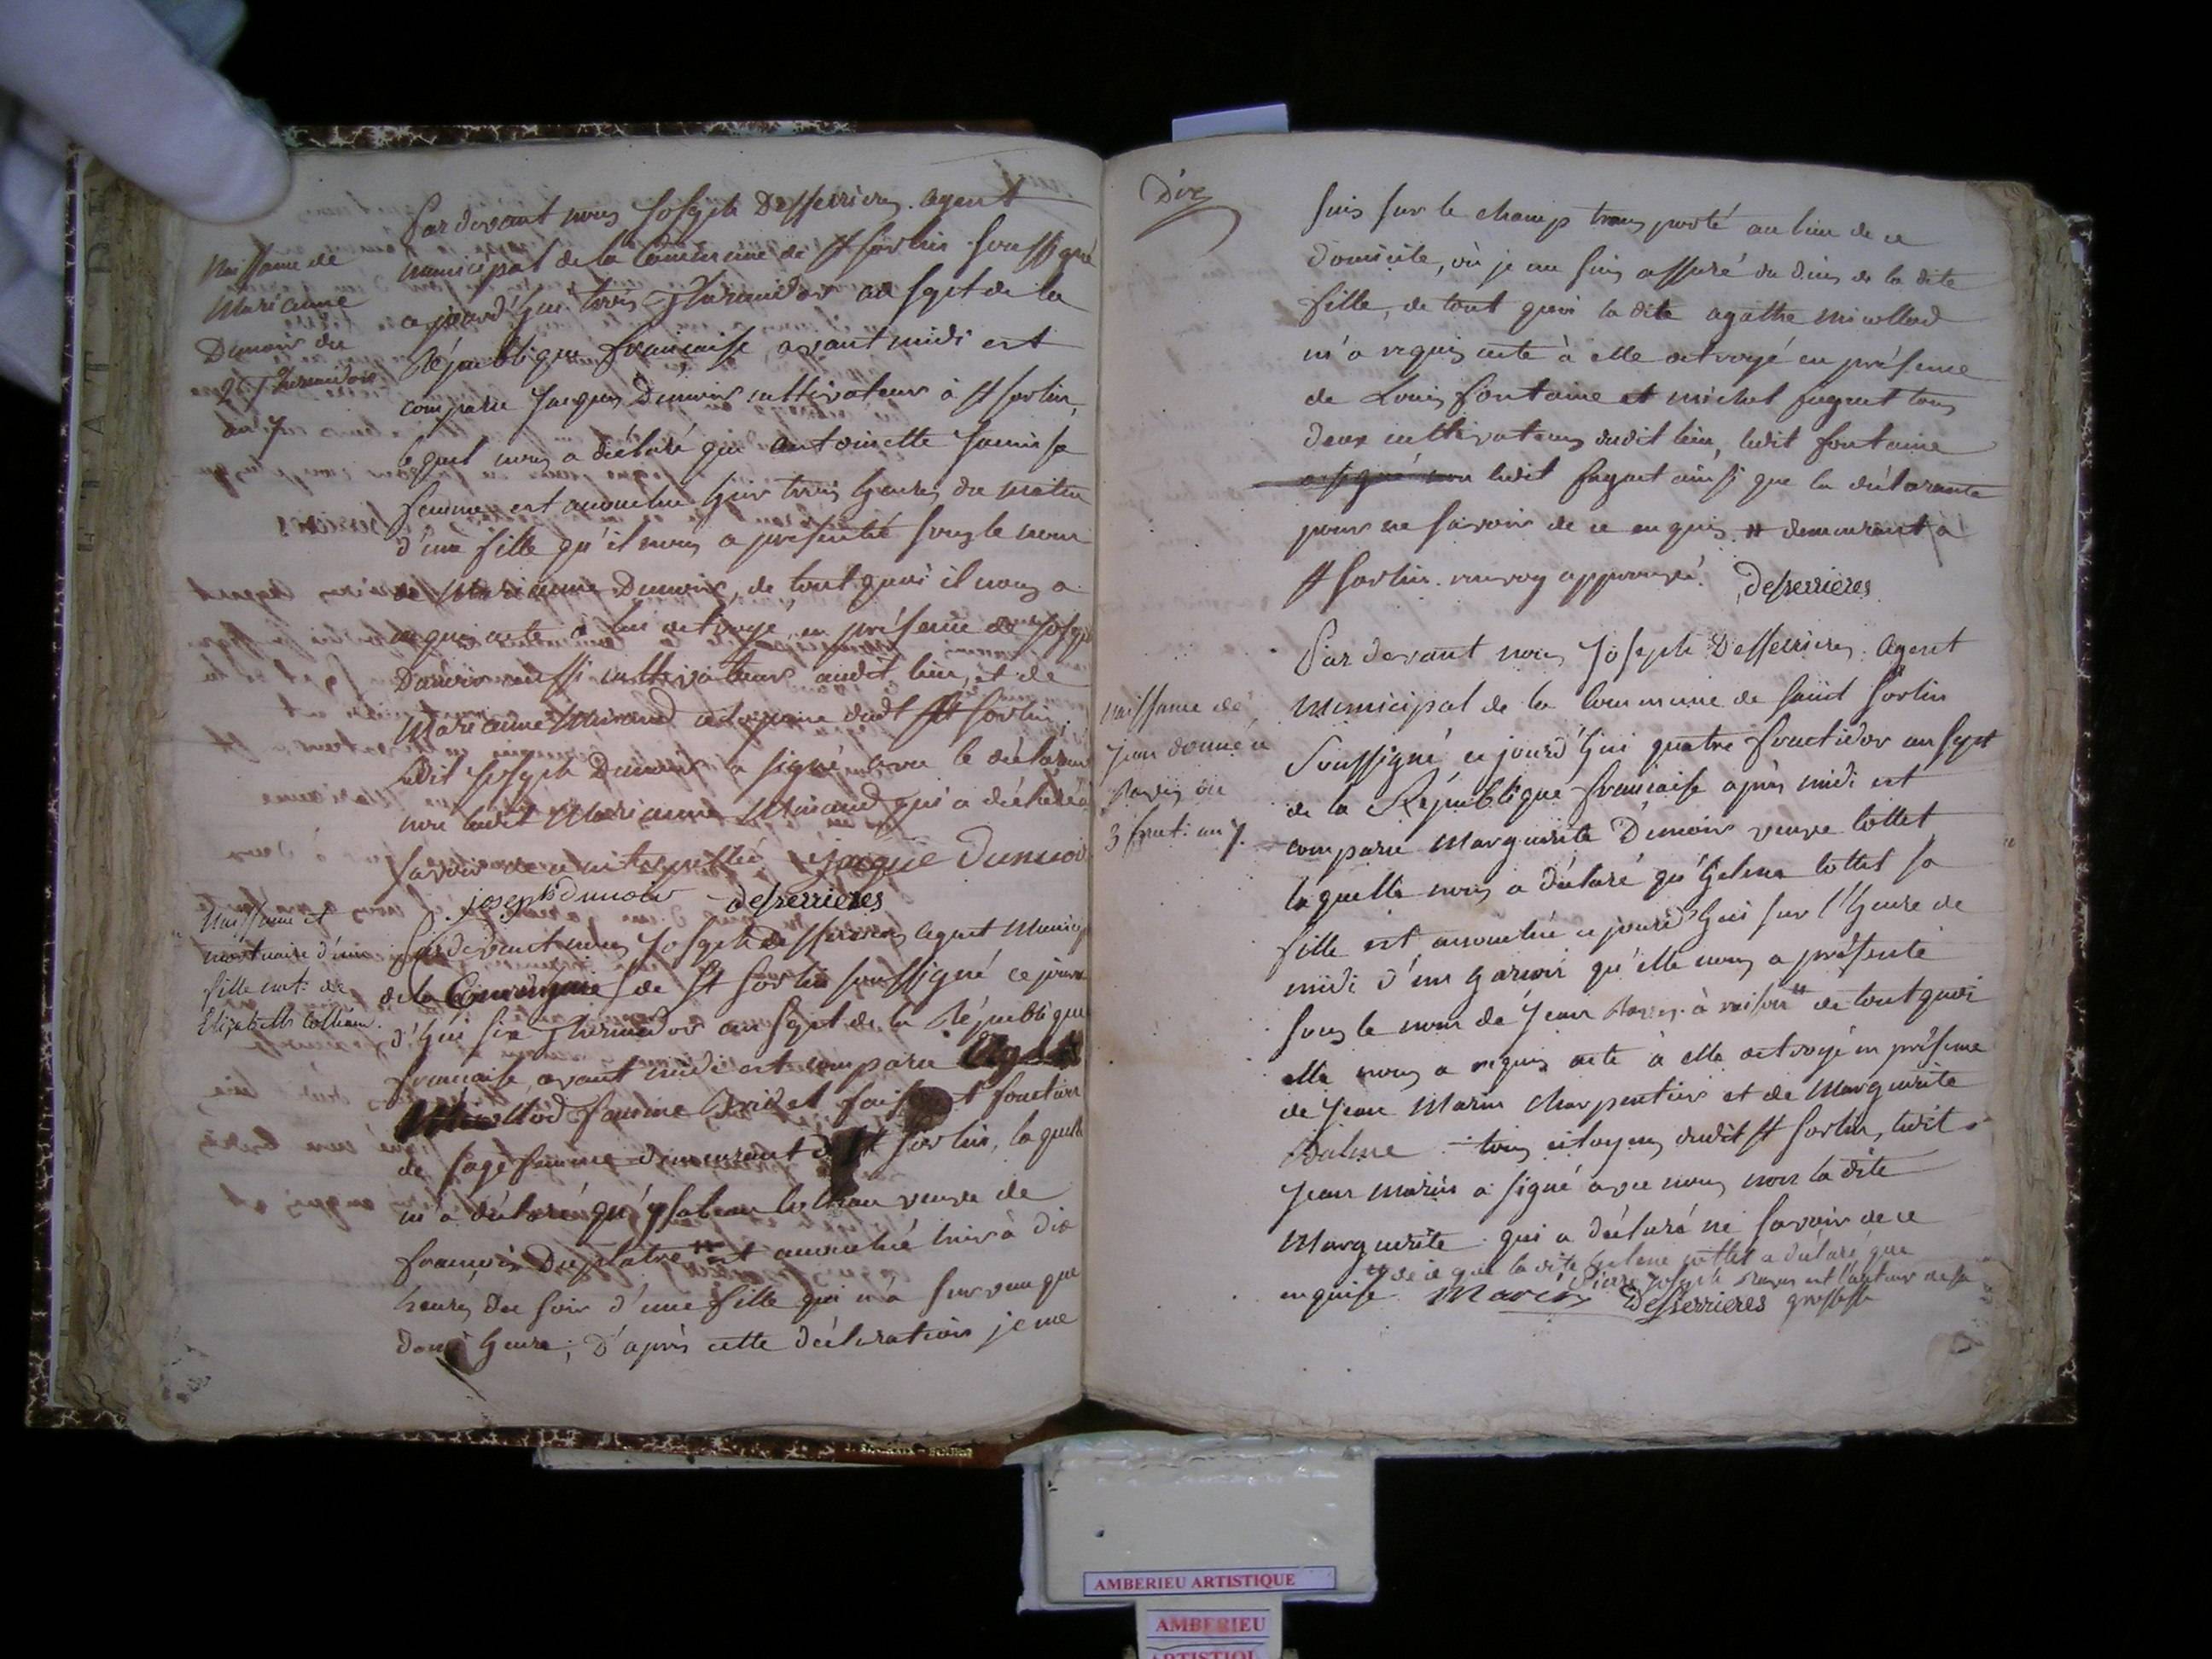 Naissance de
Marianne
Dunoir du
2 Thermidor
an 7
Par devant nous Joseph Desserrieres agent
municipal de la Commune de St Sorlin soussigné
ajourd'hui trois Thermidor an sept de la
République française, avant midi est
comparu Jacques Dunoir cultivateur à St Sorlin,
lequel nous a déclaré que antoinette sa
femme est acouchée hier trois heures du matin
d'une fille qu'il nous a présenté sous le nom
de Marianne Dunoir, de tout quoi il nous a
requis acte à lui octroyé, en présence de Joseph
Dunoir aussi cultivateur audit lieu, et de
Marianne Minand citoyenne dudt St Sorlin,
ledit Joseph Dunoir a signé avec le déclarant
non ladit Marianne Minand qui a déclaré ne
savoir de ce interpellée Jacque Dunuoir
joseph dunoir deserrieres
Naissance et
mortuaire d'une
fille nat: de
Elizabeth
Par devant nous Joseph desserrieres agent Municip
de la Commune de St Sorlin soussigné ce jour
d'hui six Thermidor an sept de la République
française, avant midi est comparu Agathe
Micollod femme faisant fonction
de sage femme demeurant à St Sorlin, laquelle
m'a déclaré qu'ysabeau veuve de
françois Duplatre # est acouchée hier à dix
heures du soir d'une fille qui n'a survecu que
demi heure; D'après cette déclaration je me
Dix
suis sur le champ transporté au lieu de ce
domicile, où je me suis assuré du décés de la dite
fille, de tout quoi la dite agathe micollod
m'a requis acte à elle octroyé en présence
de Louis fontaine et michel fagnet tous
deux cultivateurs dudit lieu, ledit fontaine
a signé non ledit fagnet ainsi que la déclarante
pour ne savoir de ce enquis. # demeurant a
St Sorlin. renvoy approuvé. Deserrieres
Naissance de
Jean donné à
3 fruct: an 7.
Par devant nous Joseph Desserrieres. Agent
Municipal de la Commune de saint Sorlin
Soussigné ce jourd'hui quatre fructidor an sept
de la République française après midi est
comparu Marguerite Dunoir veuve Cottet
laquelle nous a déclaré qu'helene Cottet sa
fille est acouchée ce jourd'hui sur l'heure de
midi d'un garçon qu'elle nous a présenté
sous le nom de Jean à raison # de tout quoi
elle nous a requis acte à elle octroyé en présence
de Jean Marin charpentier et de Marguerite
Balme tous citoyens dudit St Sorlin, ledit
Jean Marin a signé avec nous non la dite
Marguerite qui a déclaré ne savoir de ce
enquise # de ce que la dite helene cottet a déclaré que
Pierre Joseph est l'auteur de sa
grossesse
Marin Desserrieres
AMBERIEU ARTISTIQUE
AMBERIEU
ARTISTIQU